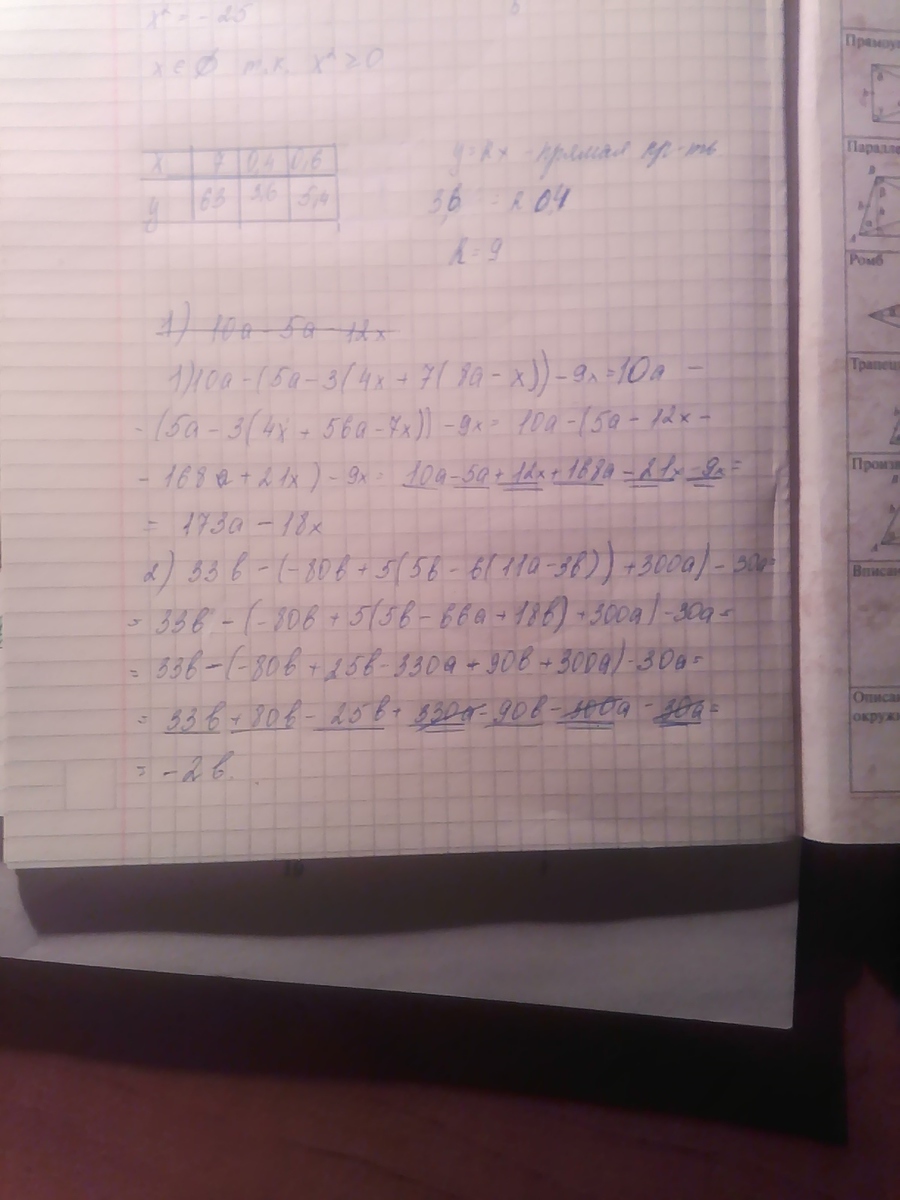 x² = -25
x ∈ ∅ т.к. x² ≥ 0
x 7 0,4 0,6
y 63 3,6 5,4
y = kx - прямая пр-ть
3,6 = k 0,4
k = 9
1) 10a - 5a - 12x
1) 10a - (5a - 3(4x + 7(8a - x)) - 9x = 10a -
- (5a - 3(4x + 56a - 7x)) - 9x = 10a - (5a - 12x -
- 168a + 21x) - 9x = 10a - 5a + 12x + 168a - 21x - 9x =
= 173a - 18x
2) 33в - (-80в + 5(5в - 6(11a - 3в)) + 300a) - 30a =
= 33в - (-80в + 5(5в - 66a + 18в) + 300a) - 30a =
= 33в - (-80в + 25в - 330a + 90в + 300a) - 30a =
= 33в + 80в - 25в + 330a - 90в - 300a - 30a =
= -2в.
Прямоу
Паралле
Ромб
Трапец
Произв
Вписан
Описан
окружн